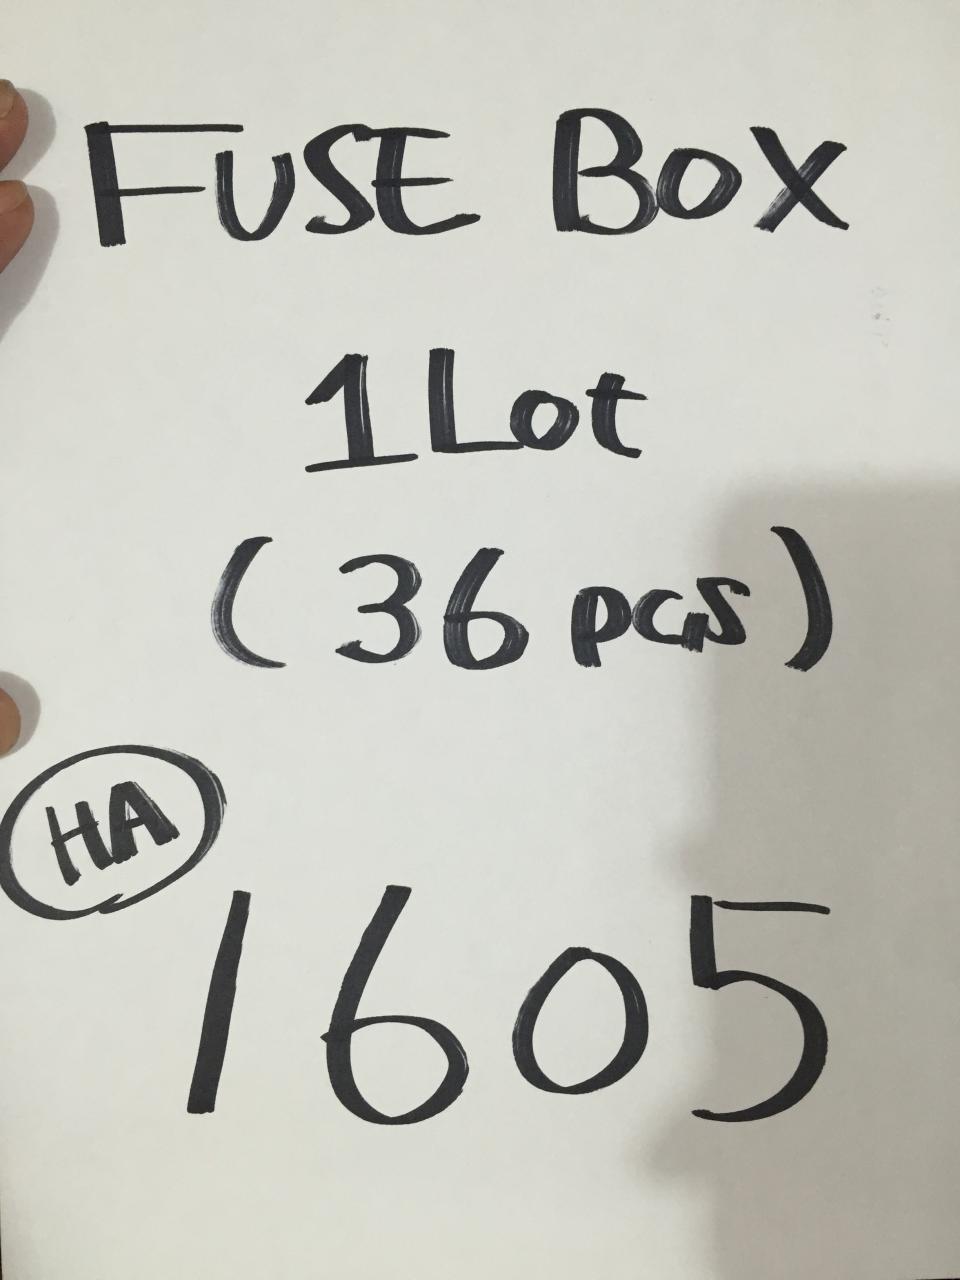 FUSE BOX
1 Lot
(36 pcs)
HA
1605